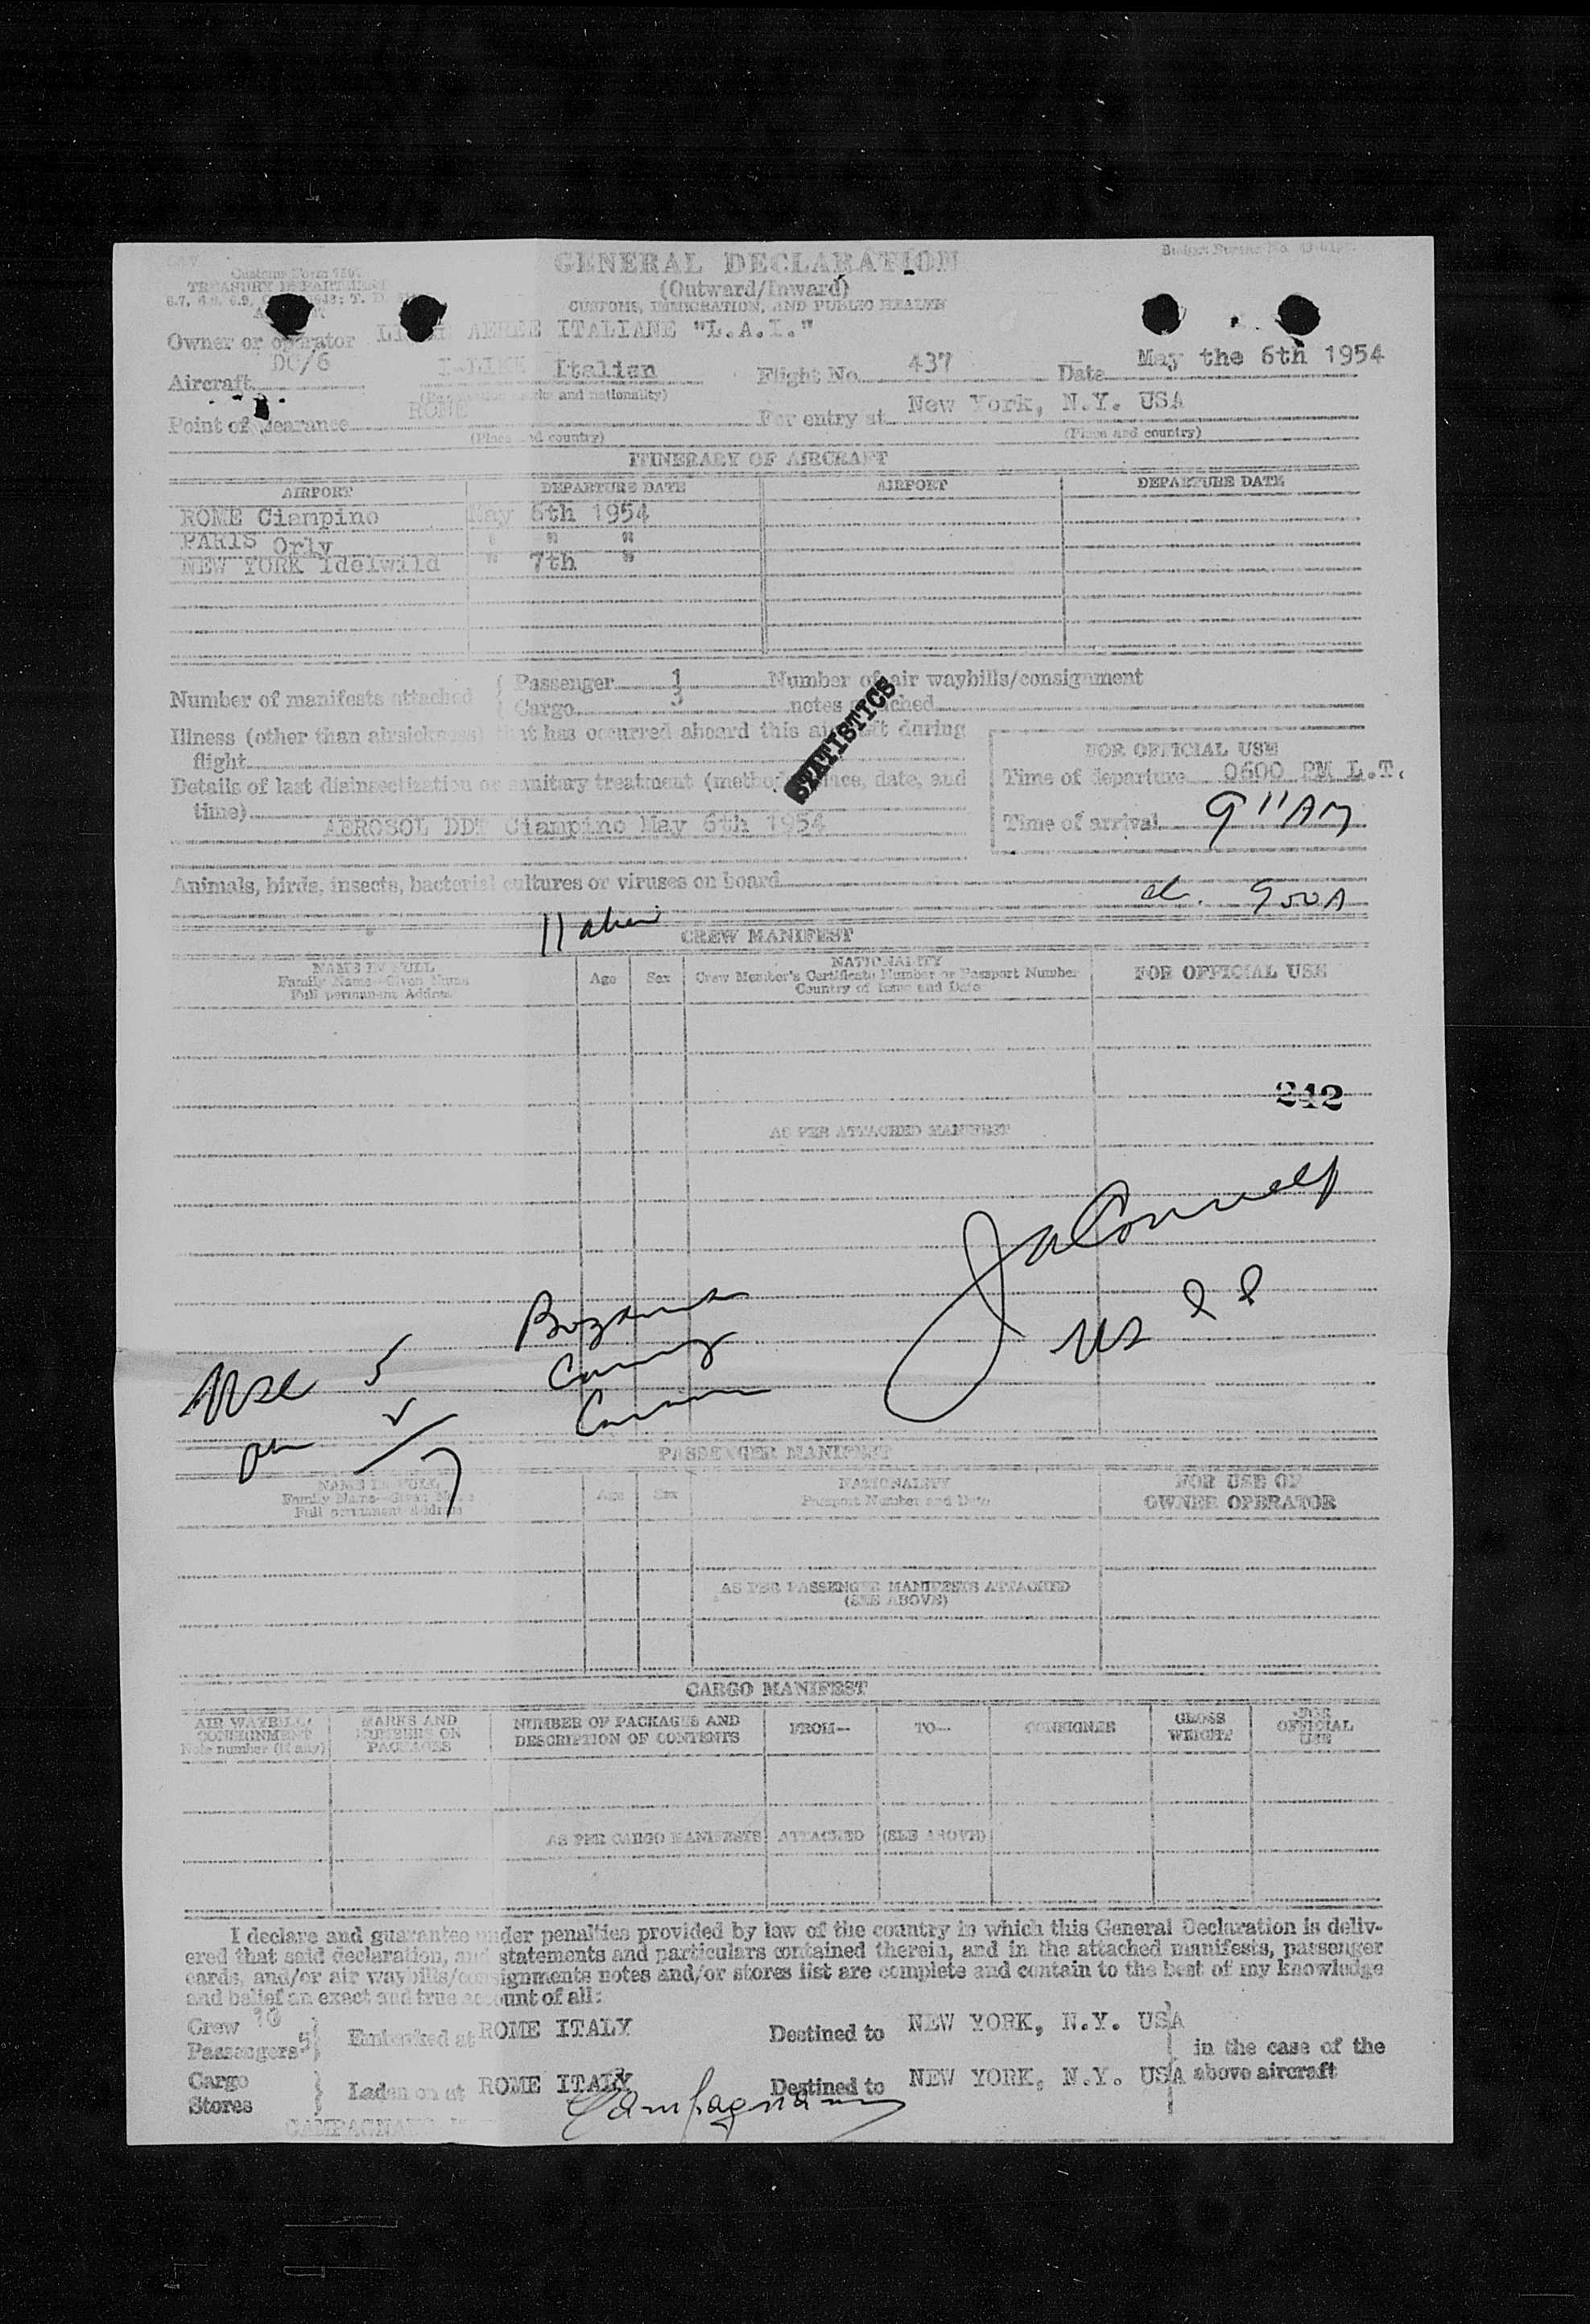 GENERAL DECLARATION
(Outward/Inward)
CUSTOMS, IMMIGRATION, AND PUBLIC HEALTH
Customs Form
TREASURY DEPARTMENT
Owner or operator AEREE ITALIANE "L.A.I."
Aircraft DC/6 Italian Flight No. 437 Date May the 6th 1954
Point of clearance ROME For entry at New York, N.Y. USA
(Place and country) (Place and country)
ITINERARY OF AIRCRAFT
AIRPORT DEPARTURE DATE AIRPORT DEPARTURE DATE
ROME Ciampino May 6th 1954
PARIS Orly " " "
NEW YORK Idelwild " 7th "
Number of manifests attached Passenger 1 Number of air waybills/consignment
Cargo 3 notes attached
STATISTICS
Illness (other than airsickness) that has occurred aboard this aircraft during
flight
Details of last disinsectization or sanitary treatment (method, place, date, and
time)
AEROSOL DDT Ciampino May 6th 1954
FOR OFFICIAL USE
Time of departure 0600 PM L.T.
Time of arrival 9 11 AM
Animals, birds, insects, bacterial cultures or viruses on board
900A
CREW MANIFEST
NAME IN FULL
Family Name—Given Name
Full permanent Address
Age Sex
NATIONALITY
Crew Member's Certificate Number or Passport Number
Country of Issue and Date
FOR OFFICIAL USE
242
AS PER ATTACHED MANIFEST
5
PASSENGER MANIFEST
NAME IN FULL
Family Name—Given Name
Full permanent address
Age Sex
NATIONALITY
Passport Number and Date
FOR USE OF
OWNER OPERATOR
AS PER PASSENGER MANIFESTS ATTACHED
(SEE ABOVE)
CARGO MANIFEST
AIR WAYBILL/
CONSIGNMENT
Note number (if any)
MARKS AND
NUMBERS ON
PACKAGES
NUMBER OF PACKAGES AND
DESCRIPTION OF CONTENTS
FROM— TO— CONSIGNEE
GROSS
WEIGHT
FOR
OFFICIAL
USE
AS PER CARGO MANIFESTS ATTACHED (SEE ABOVE)
I declare and guarantee under penalties provided by law of the country in which this General Declaration is deliv-
ered that said declaration, and statements and particulars contained therein, and in the attached manifests, passenger
cards, and/or air waybills/consignments notes and/or stores list are complete and contain to the best of my knowledge
and belief an exact and true account of all:
Crew 10
Passengers 5 Embarked at ROME ITALY Destined to NEW YORK, N.Y. USA
in the case of the
above aircraft
Cargo
Stores Laden on at ROME ITALY Destined to NEW YORK, N.Y. USA